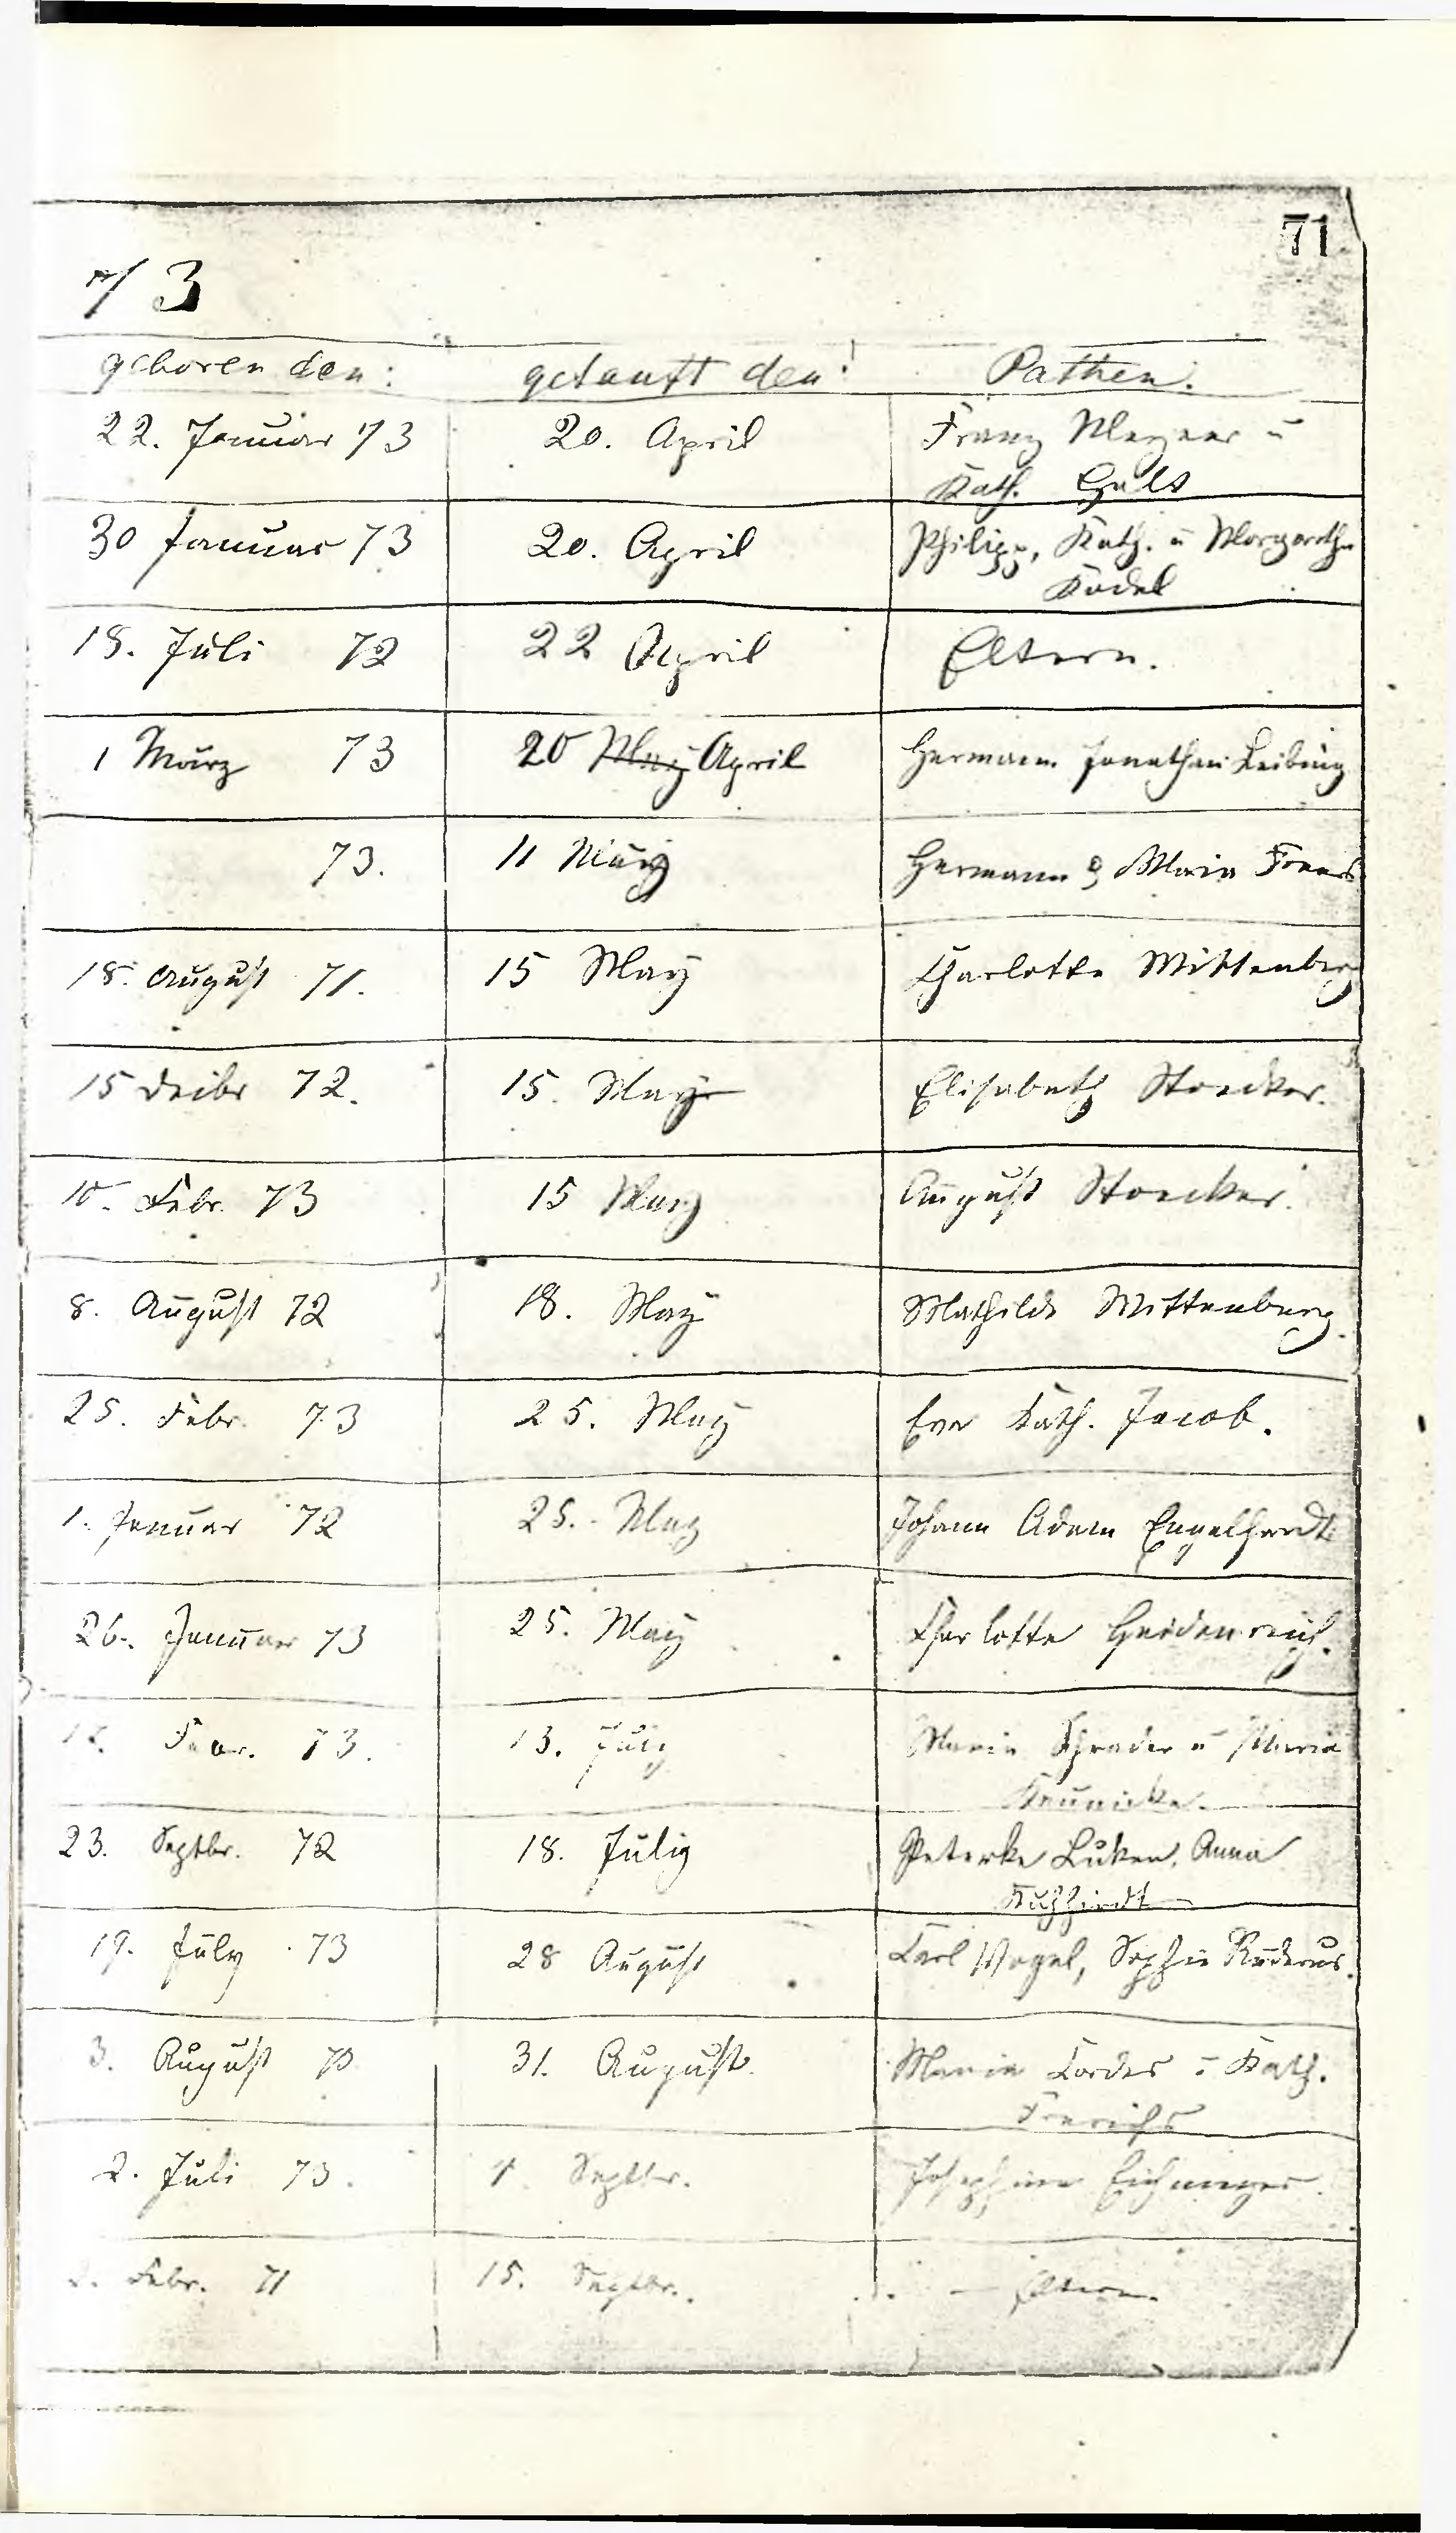 71
73
geboren den: getauft den: Pathen.
22. Januar 73 20. April Franz u
Kath.
30 Januar 73 20. April Philipp, Kath. u Margaretha
Kodel
18. Juli 72 22 April Eltern.
1 März 73 20 May April Hermann Jonathan Leibing
73. 11 May Hermann & Maria
18. August 71. 15 May Charlotte Wittenberg
15 Decbr 72. 15. May Elisabeth Stoecker.
10. Febr. 73 15 May August Stoecker.
8. August 72 18. May Mathilde Wittenberg.
25. Febr. 73 25. May Eva Kath. Jacob.
1. Januar 72 25. May Johann Adam Engelhardt
26. Januar 73 25. May Charlotte Heidenreich.
Febr. 73. 13. July Maria Schrader u Maria
23. Septbr. 72 18. July Peterke Lüken, Anna
19. July 73 28 August Carl Vogel, Sophie
3. August 73 31. August. Maria Cordes u Kath.
2. Juli 73. Septbr. Josephine
Febr. 71 15. Septbr. — Eltern.